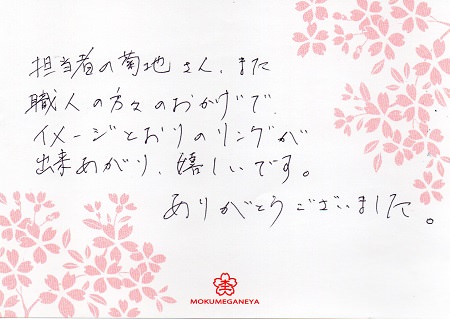 担当者の菊地さん、また
職人の方々のおかげで、
イメージどおりのリングが
出来あがり、嬉しいです。
ありがとうございました。
MOKUMEGANEYA